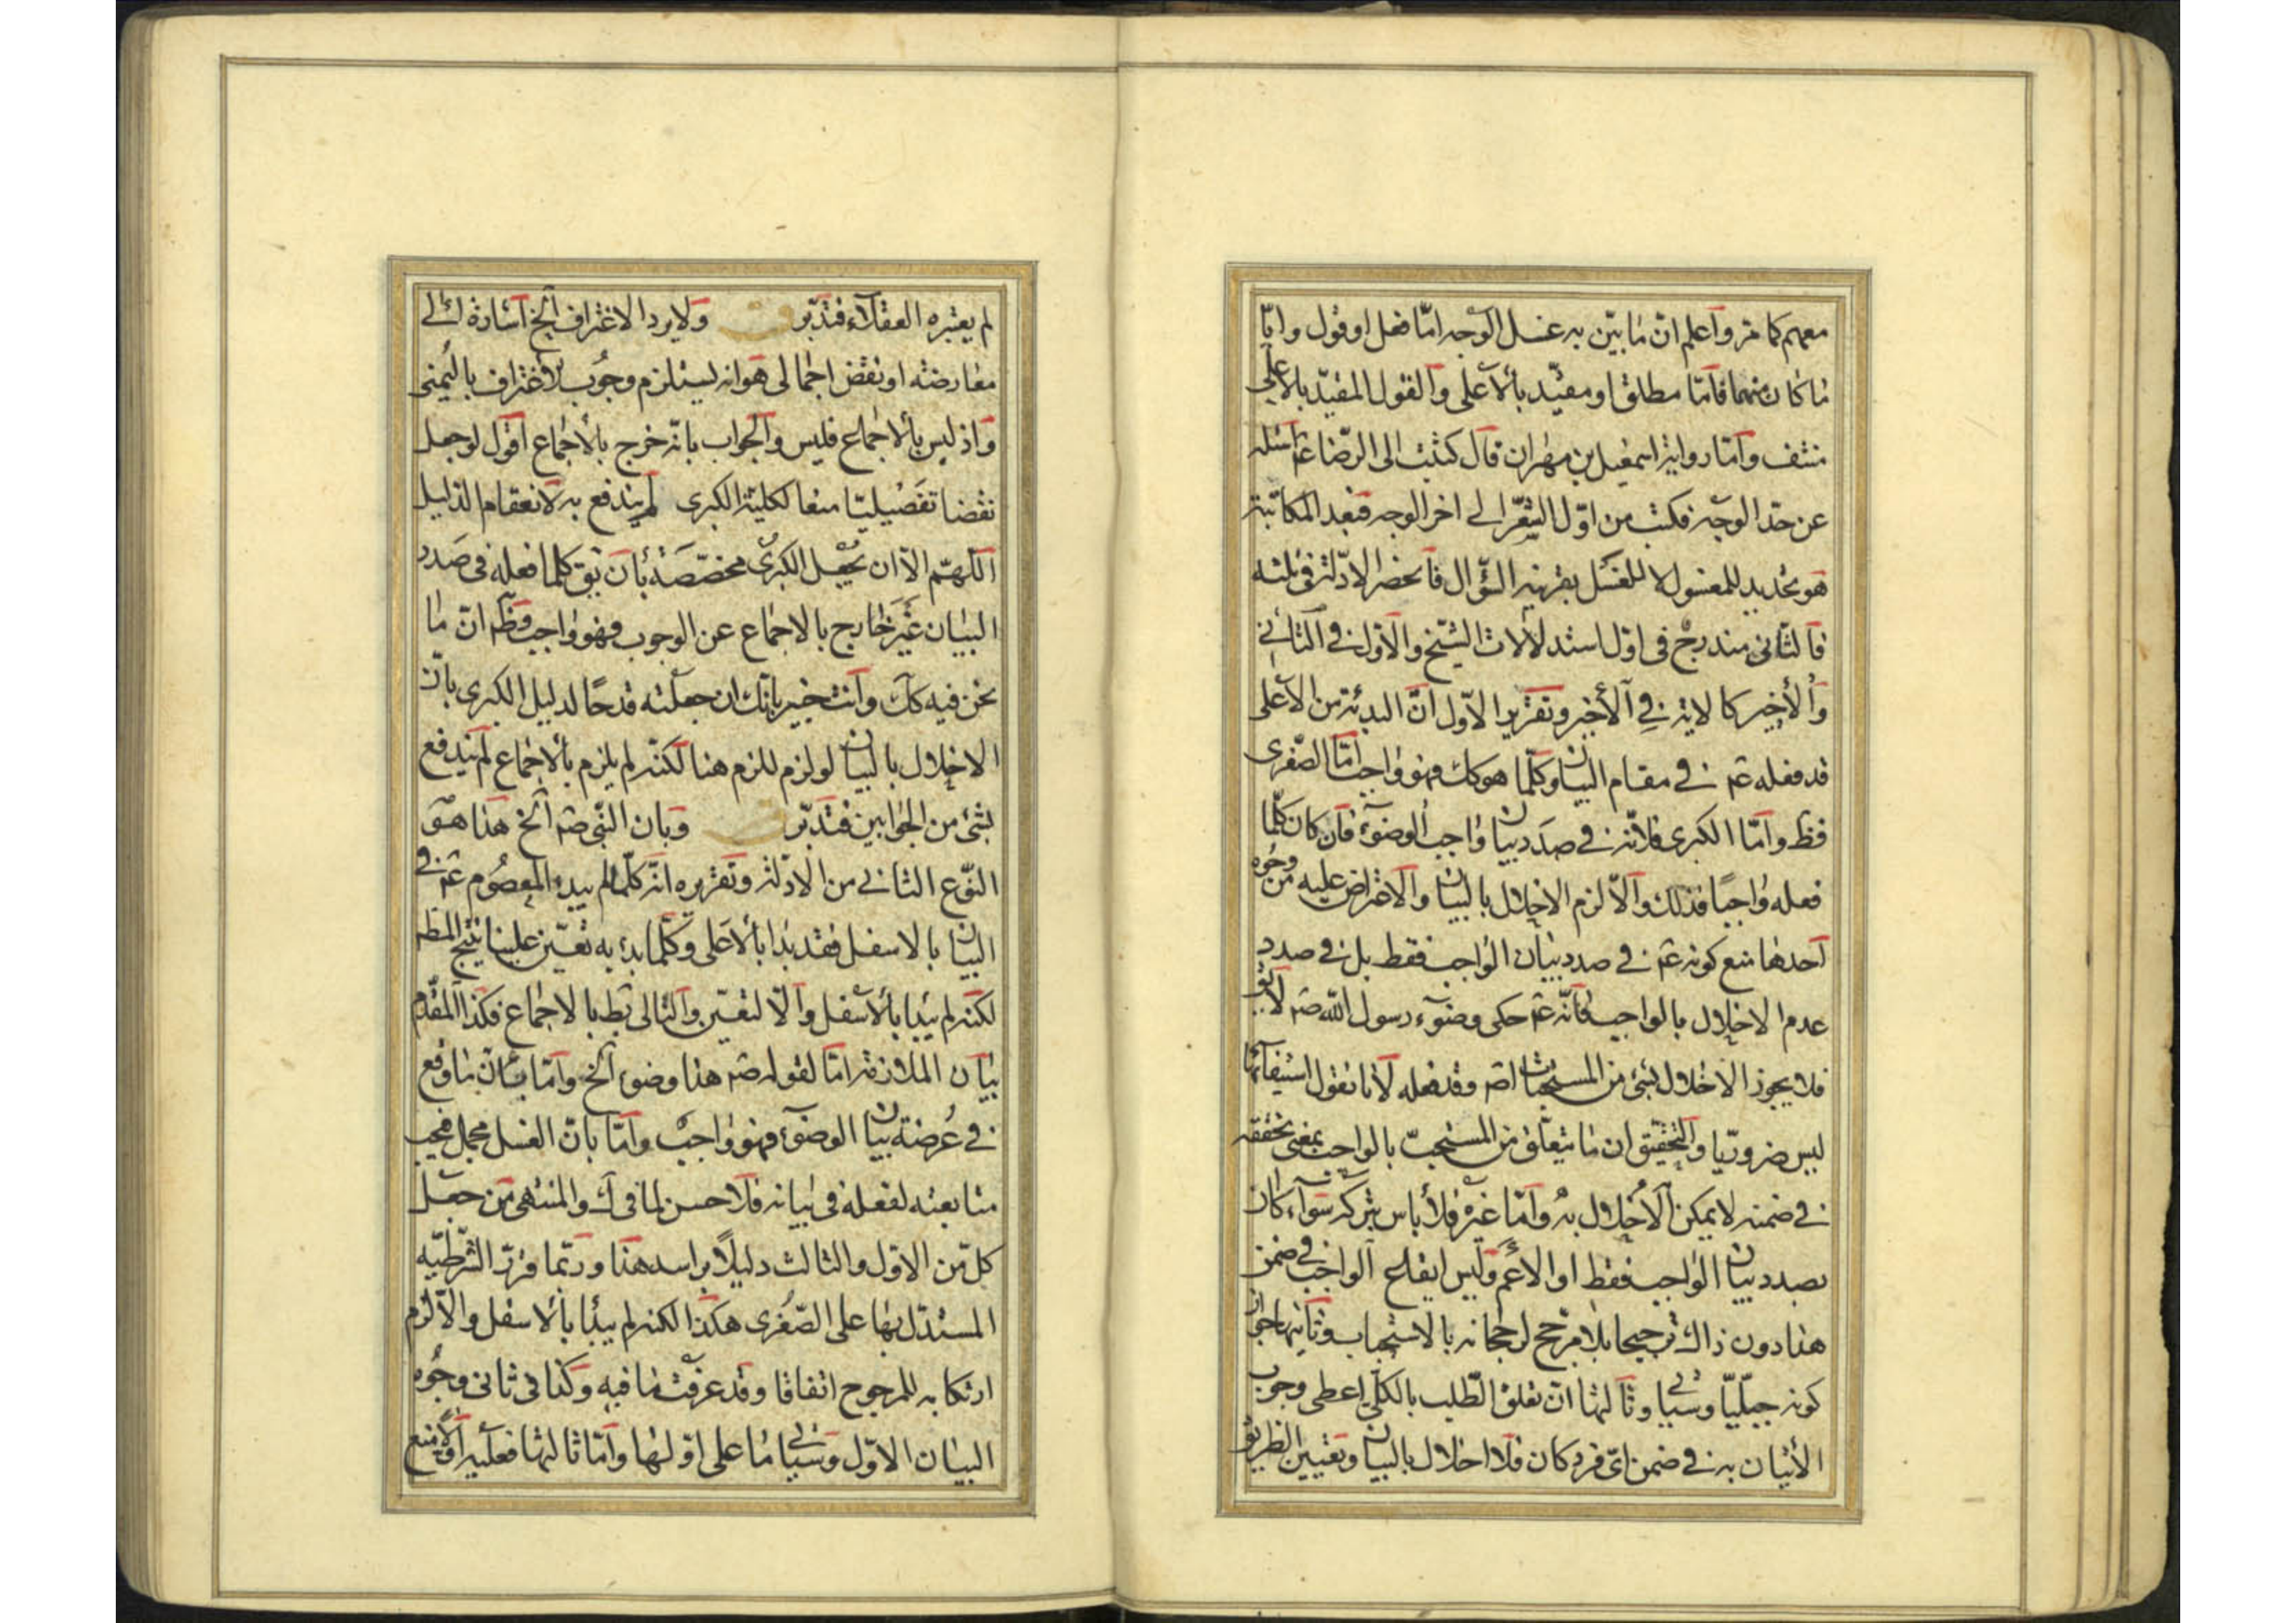 معهم كما مر واعلم ان ما بين به غسل الوجه اما فعل او قول وايا
ما كان منهما فاما مطلق او مقيد بالاعلى والقول المقيد بالاعلى
منتف واما رواية اسمعيل بن مهران قال كتبت الى الرضا عم اسئله
عن حد الوجه فكتب من اول الشعر الى اخر الوجه فبعد المكاتبة
هو تحديد للمغسول لا للغسل بقرينه السؤال فانحصر الادلة فى ثلثه
فالثانى مندرج فى اول استدلالات الشيخ والاول فى الثانى
والاخير كالاية فى الاخير وتقرير الاول ان البدئة من الاعلى
قد فعله عم فى مقام البيان وكلما هو كك فهو واجب اما الصغرى
فظ واما الكبرى فلانه فى صدد بيان واجب الوضوء فان كان كلما
فعله واجبا فذلك والا لزم الاخلال بالبيان والاعتراض عليه من وجوه
احدها منع كونه عم فى صدد بيان الواجب فقط بل فى صدد
عدم الاخلال بالواجب فانه عم حكى وضوء رسول الله صم لا يق
فلا يجوز الاخلال بشئ من المستحبات اصم وقد فعله لانا نقول استيفائها
ليس ضروريا والتحقيق ان ما يتعلق من المستحب بالواجب بمعنى تحققه
فى ضمنه لا يمكن الاخلال به واما غيره فلا باس بتركه سواء كان
بصدد بيان الواجب فقط او الاعم وليس ايقاع الواجب فى ضمن
هذا دون ذاك ترجيحا بلا مرجح لرجحانه بالاستحباب وثانيها جواز
كونه جبليا وسياتى وثالثها ان تعلق الطلب بالكلى اعطى وجوب
الاتيان به فى ضمن اى فرد كان فلا اخلال بالبيان وتعيين الطريق
لم يعتبره العقلاء فتدبر ولا يرد الاغتراف الخ اشارة الى
معارضته او نقض اجمالى هو انه يستلزم وجوب الاغتراف باليمنى
واذ ليس بالاجماع فليس والجواب بانه خرج بالاجماع اقول لو جعل
نقضا تفصيليا منعا لكلية الكبرى لم يندفع به لانعقام الدليل
اللهم الا ان يجعل الكبرى مخصصة بان يق كلما فعله فى صدد
البيان غير خارج بالاجماع عن الوجوب فهو واجب وظم ان ما
نحن فيه كك وانت خبير بانك ان جعلته قدحا لدليل الكبرى بان
الاخلال بالبيان لو لزم للزم هنا لكنه لم يلزم بالاجماع لم يندفع
بشئ من الجوابين فتدبر وبان النبى صم الخ هذا هو
النوع الثانى من الادلة وتقريره انه كلما لم يبدء المعصوم عم فى
البيان بالاسفل فقد بدا بالاعلى وكلما بدء به تعين علينا ينتج المظم
لكنه لم يبدا بالاسفل والا لتعين والتالى بط بالاجماع فكذا المقدم
بيان الملازمة اما لقوله صم هذا وضوء الخ واما بان ما وقع
فى عرضة بيان الوضوء فهو واجب واما بان الغسل مجمل فيجب
متابعته لفعله فى بيانه فلا حسن لما فى ك والمنتهى من جعل
كل من الاول والثالث دليلا براسه هذا وربما قرر الشرطيه
المستدل بها على الصغرى هكذا لكنه لم يبدا بالاسفل والا لزم
ارتكابه للمرجوح اتفاقا وقد عرفت ما فيه وكذا فى ثانى وجوه
البيان الاول وسياتى ما على اولها واما ثالثها فعليه اولا منع